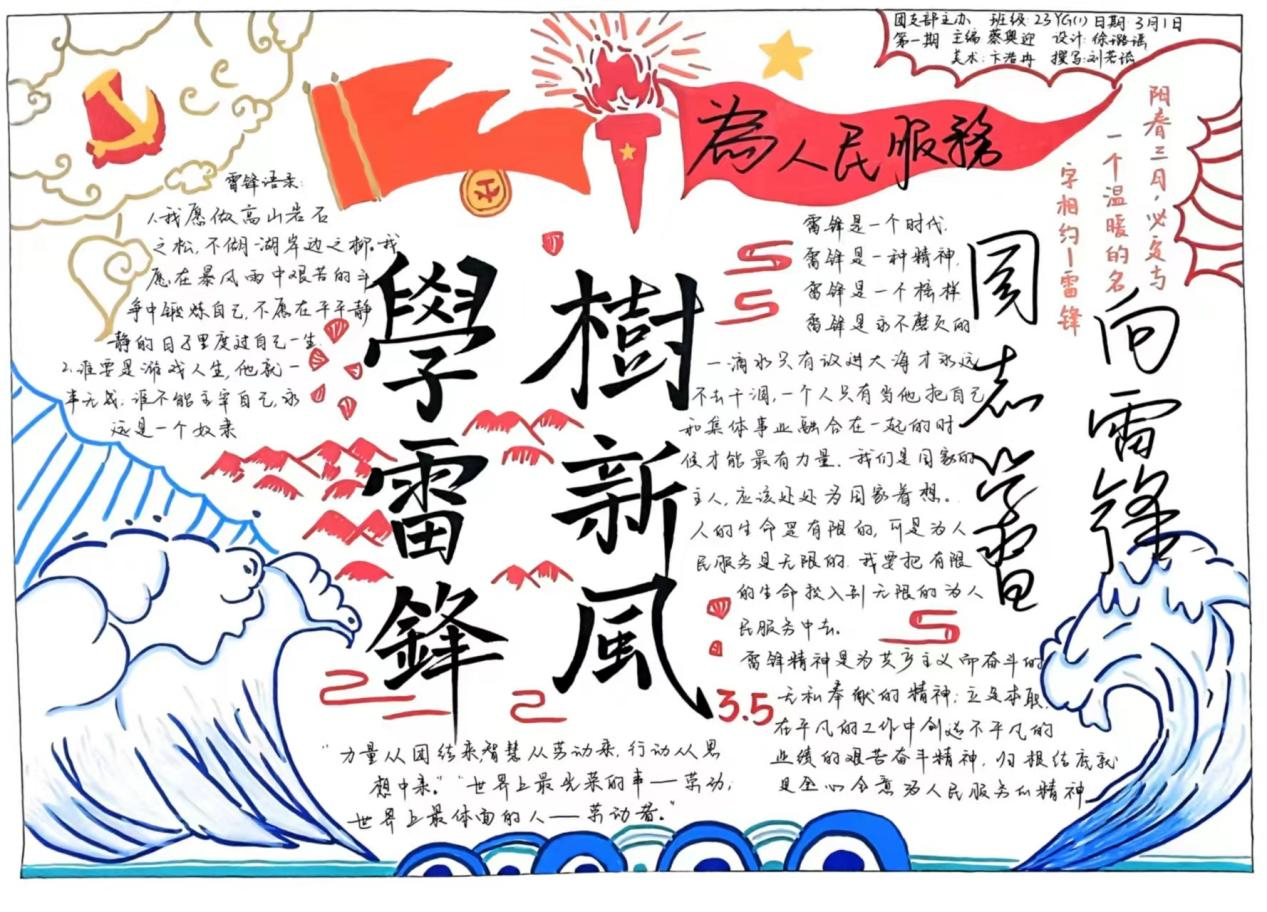 团支部主办 班级:23YG(1) 日期:3月1日
第一期 主编 蔡奥迎 设计:徐璐瑶
美术:卞浩冉 撰写:刘若涵
为人民服務
阳春三月,必定与
一个温暖的名
字相约—雷锋
向雷锋
同志学習
學雷鋒
樹新風
雷锋语录:
1.我愿做高山岩石
之松,不做湖岸边之柳。我
愿在暴风雨中艰苦的斗
争中锻炼自己,不愿在平平静
静的日子里度过自己一生。
2.谁要是游戏人生,他就一
事无成,谁不能主宰自己,永
远是一个奴隶
雷锋是一个时代.
雷锋是一种精神.
雷锋是一个榜样
雷锋是永不磨灭的
一滴水只有放进大海才永远
不会干涸,一个人只有当他把自己
和集体事业融合在一起的时
候才能最有力量.我们是国家的
主人,应该处处为国家着想。
人的生命是有限的,可是为人
民服务是无限的.我要把有限
的生命投入到无限的为人
民服务中去。
雷锋精神是为共产主义而奋斗的
无私奉献的精神;立足本职,
在平凡的工作中创造不平凡的
业绩的艰苦奋斗精神,归根结底就
是全心全意为人民服务的精神
3.5
"力量从团结来,智慧从劳动来,行动从思
想中来。""世界上最光荣的事——劳动;
世界上最体面的人——劳动者。"